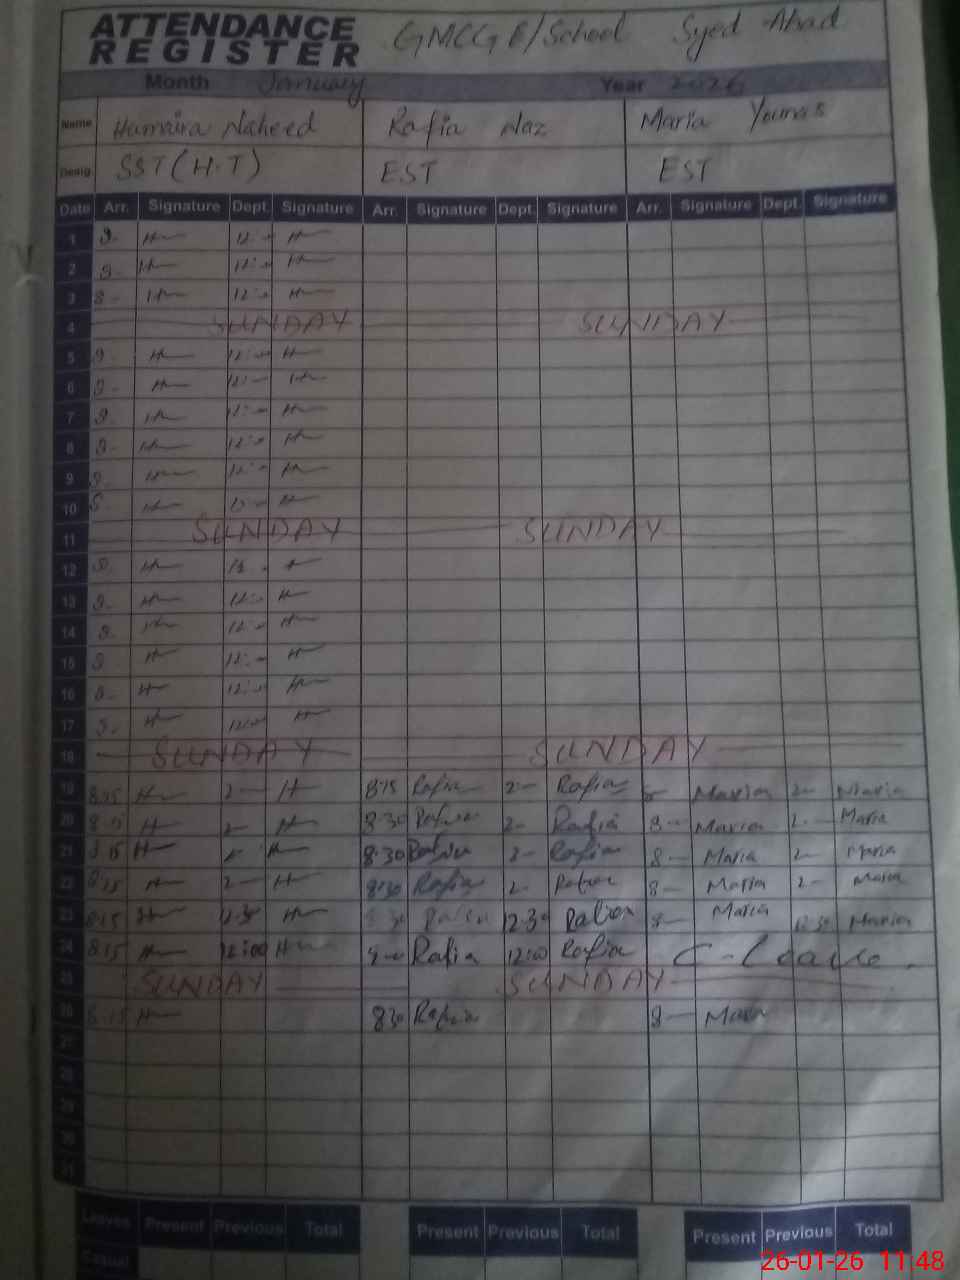 ATTENDANCE REGISTER GMCG E/School Syed Ahad
Month January Year 2026
Name Humaira Naheed Rafia Naz Maria Younas
Desig. SST (H.T) EST EST
Date Arr. Signature Dept. Signature Arr. Signature Dept. Signature Arr. Signature Dept. Signature
1 8- H 12:- H
2 8- H 12:- H
3 8- H 12:- H
4 SUNDAY SUNDAY
5 8- H 12:- H
6 8- H 12:- H
7 8- H 12:- H
8 8- H 12:- H
9 8- H 12:- H
10 8- H 12- H
11 SUNDAY SUNDAY
12 8- H 12- H
13 8- H 12:- H
14 8- H 12:- H
15 8- H 12:- H
16 8- H 12:- H
17 8- H 12:- H
18 SUNDAY SUNDAY
19 8:15 H 2- H 8:15 Rafia 2- Rafia 8- Maria 2- Maria
20 8:15 H 2- H 8:30 Rafia 2- Rafia 8- Maria 2- Maria
21 8:15 H 2- H 8:30 Rafia 2- Rafia 8- Maria 2- Maria
22 8:15 H 2- H 8:30 Rafia 2- Rafia 8- Maria 2- Maria
23 8:15 H 12:30 H 8:30 Rafia 12:30 Rafia 8- Maria 12:30 Maria
24 8:15 H 12:00 H Rafia 12:00 Rafia C-leave.
25 SUNDAY SUNDAY
26 8:15 H 8:30 Rafia 8- Maria
27
28
29
30
31
Leaves Present Previous Total Present Previous Total Present Previous Total
Casual
26-01-26 11:48